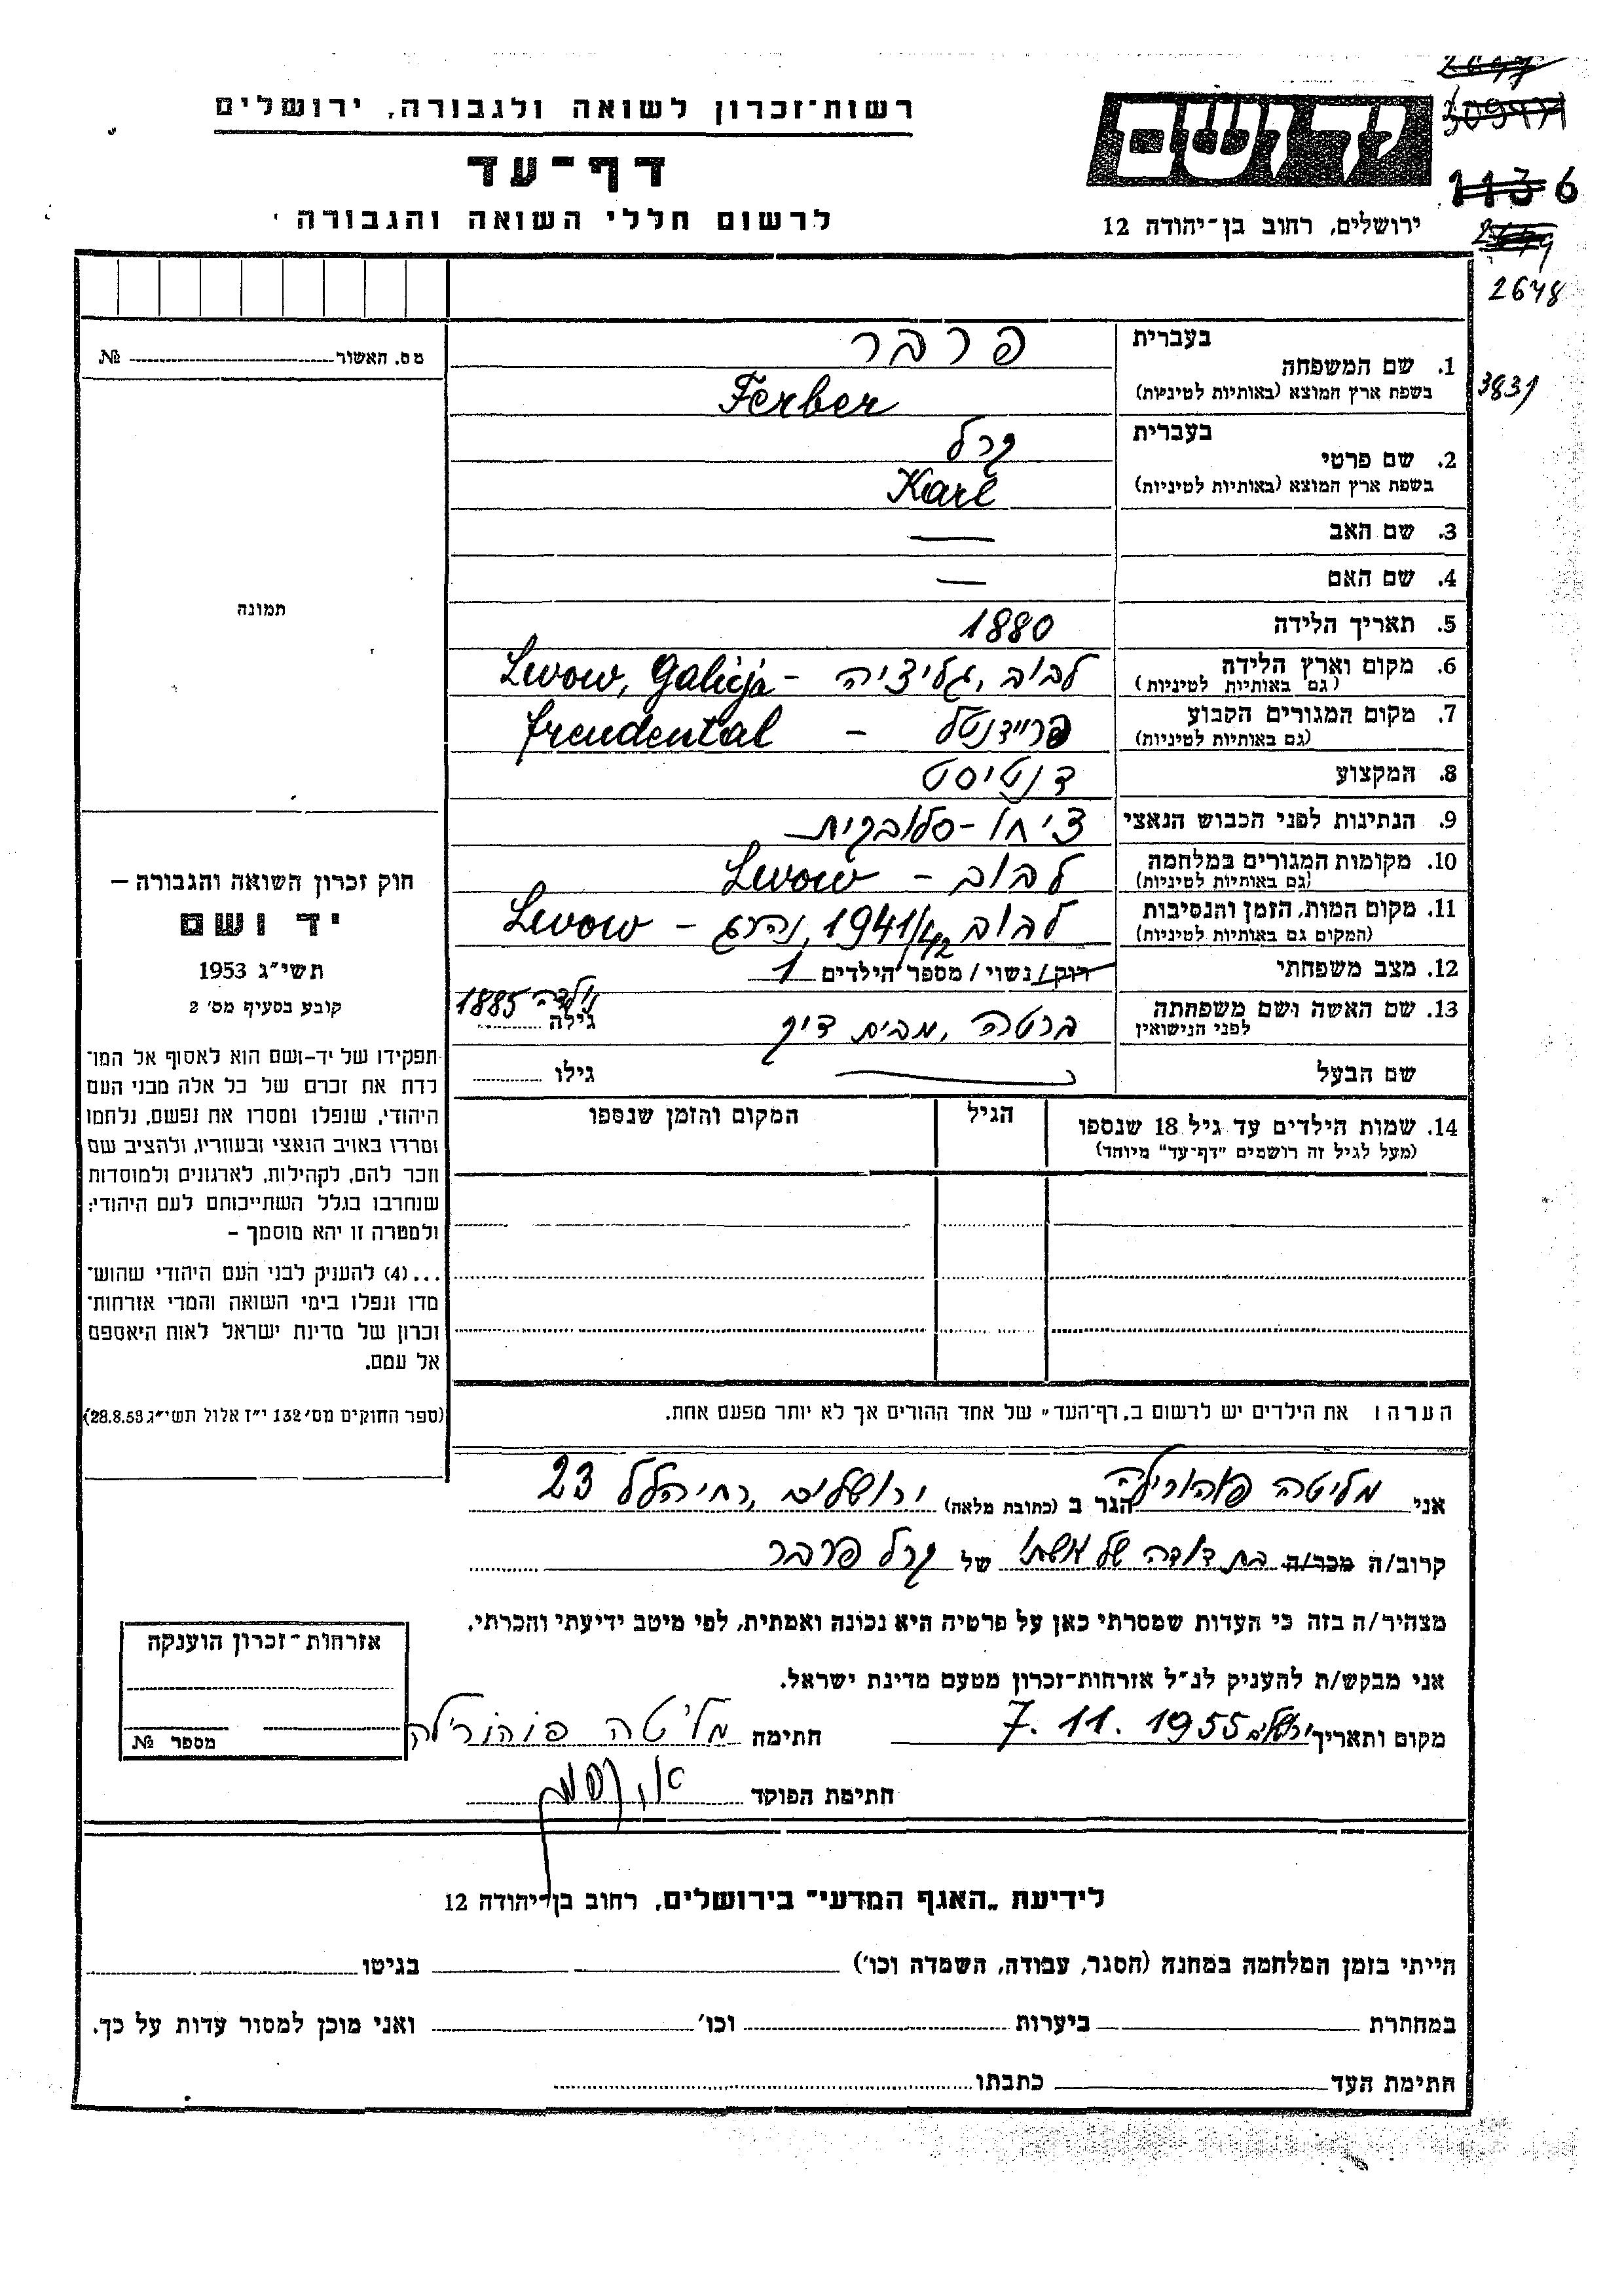 רשות-זכרון לשואה ולגבורה, ירושלים
דף-עד
לרשום חללי השואה והגבורה
ידושם
ירושלים, רחוב בן-יהודה 12
1136
2648
3831
מס. האשור № 
תמונה
בעברית פרבר
1. שם המשפחה
בשפת ארץ המוצא (באותיות לטיניות) Ferber
בעברית קרל
2. שם פרטי
בשפת ארץ המוצא (באותיות לטיניות) Karl
3. שם האב —
4. שם האם —
5. תאריך הלידה 1880
6. מקום וארץ הלידה לבוב, גליציה - Lwow, Galicja
(גם באותיות לטיניות)
7. מקום המגורים הקבוע פריידנטל - freudental
(גם באותיות לטיניות)
8. המקצוע דנטיסט
9. הנתינות לפני הכבוש הנאצי צ'יחו-סלובקית
10. מקומות המגורים במלחמה לבוב - Lwow
(גם באותיות לטיניות)
11. מקום המות, הזמן והנסיבות לבוב 1941/42, נהרג - Lwow
(המקום גם באותיות לטיניות)
12. מצב משפחתי רוק/נשוי/מספר הילדים 1
13. שם האשה ושם משפחתה ברטה, מבית דיק גילה נולדה 1885
לפני הנישואין
שם הבעל גילו
14. שמות הילדים עד גיל 18 שנספו הגיל המקום והזמן שנספו
(מעל לגיל זה רושמים "דף-עד" מיוחד)
חוק זכרון השואה והגבורה —
יד ושם
תשי"ג 1953
קובע בסעיף מס' 2
תפקידו של יד-ושם הוא לאסוף אל המו-
לדת את זכרם של כל אלה מבני העם
היהודי, שנפלו ומסרו את נפשם, נלחמו
ומרדו באויב הנאצי ובעוזריו, ולהציב שם
וזכר להם, לקהילות, לארגונים ולמוסדות
שנחרבו בגלל השתייכותם לעם היהודי;
ולמטרה זו יהא מוסמך -
...(4) להעניק לבני העם היהודי שהוש-
מדו ונפלו בימי השואה והמרי אזרחות-
זכרון של מדינת ישראל לאות היאספם
אל עמם.
(ספר החוקים מס' 132 י"ז אלול תשי"ג 28.8.53)
הערה: את הילדים יש לרשום ב"דף-העד" של אחד ההורים אך לא יותר מפעם אחת.
אני מליטה פוהורילה הגר ב (כתובת מלאה) ירושלים, רח' הלל 23
קרוב/ה מכר/ה בת דודה של אשתו של קרל פרבר
מצהיר/ה בזה כי העדות שמסרתי כאן על פרטיה היא נכונה ואמתית, לפי מיטב ידיעתי והכרתי.
אני מבקש/ת להעניק לנ"ל אזרחות-זכרון מטעם מדינת ישראל.
מקום ותאריך ירושלים 7.11.1955 חתימה מליטה פוהורילה
חתימת הפוקד
אזרחות-זכרון הוענקה
מספר №
לידיעת "האגף המדעי" בירושלים, רחוב בן-יהודה 12
הייתי בזמן המלחמה במחנה (הסגר, עבודה, השמדה וכו') בגיטו
במחתרת ביערות וכו' ואני מוכן למסור עדות על כך.
חתימת העד כתבתו